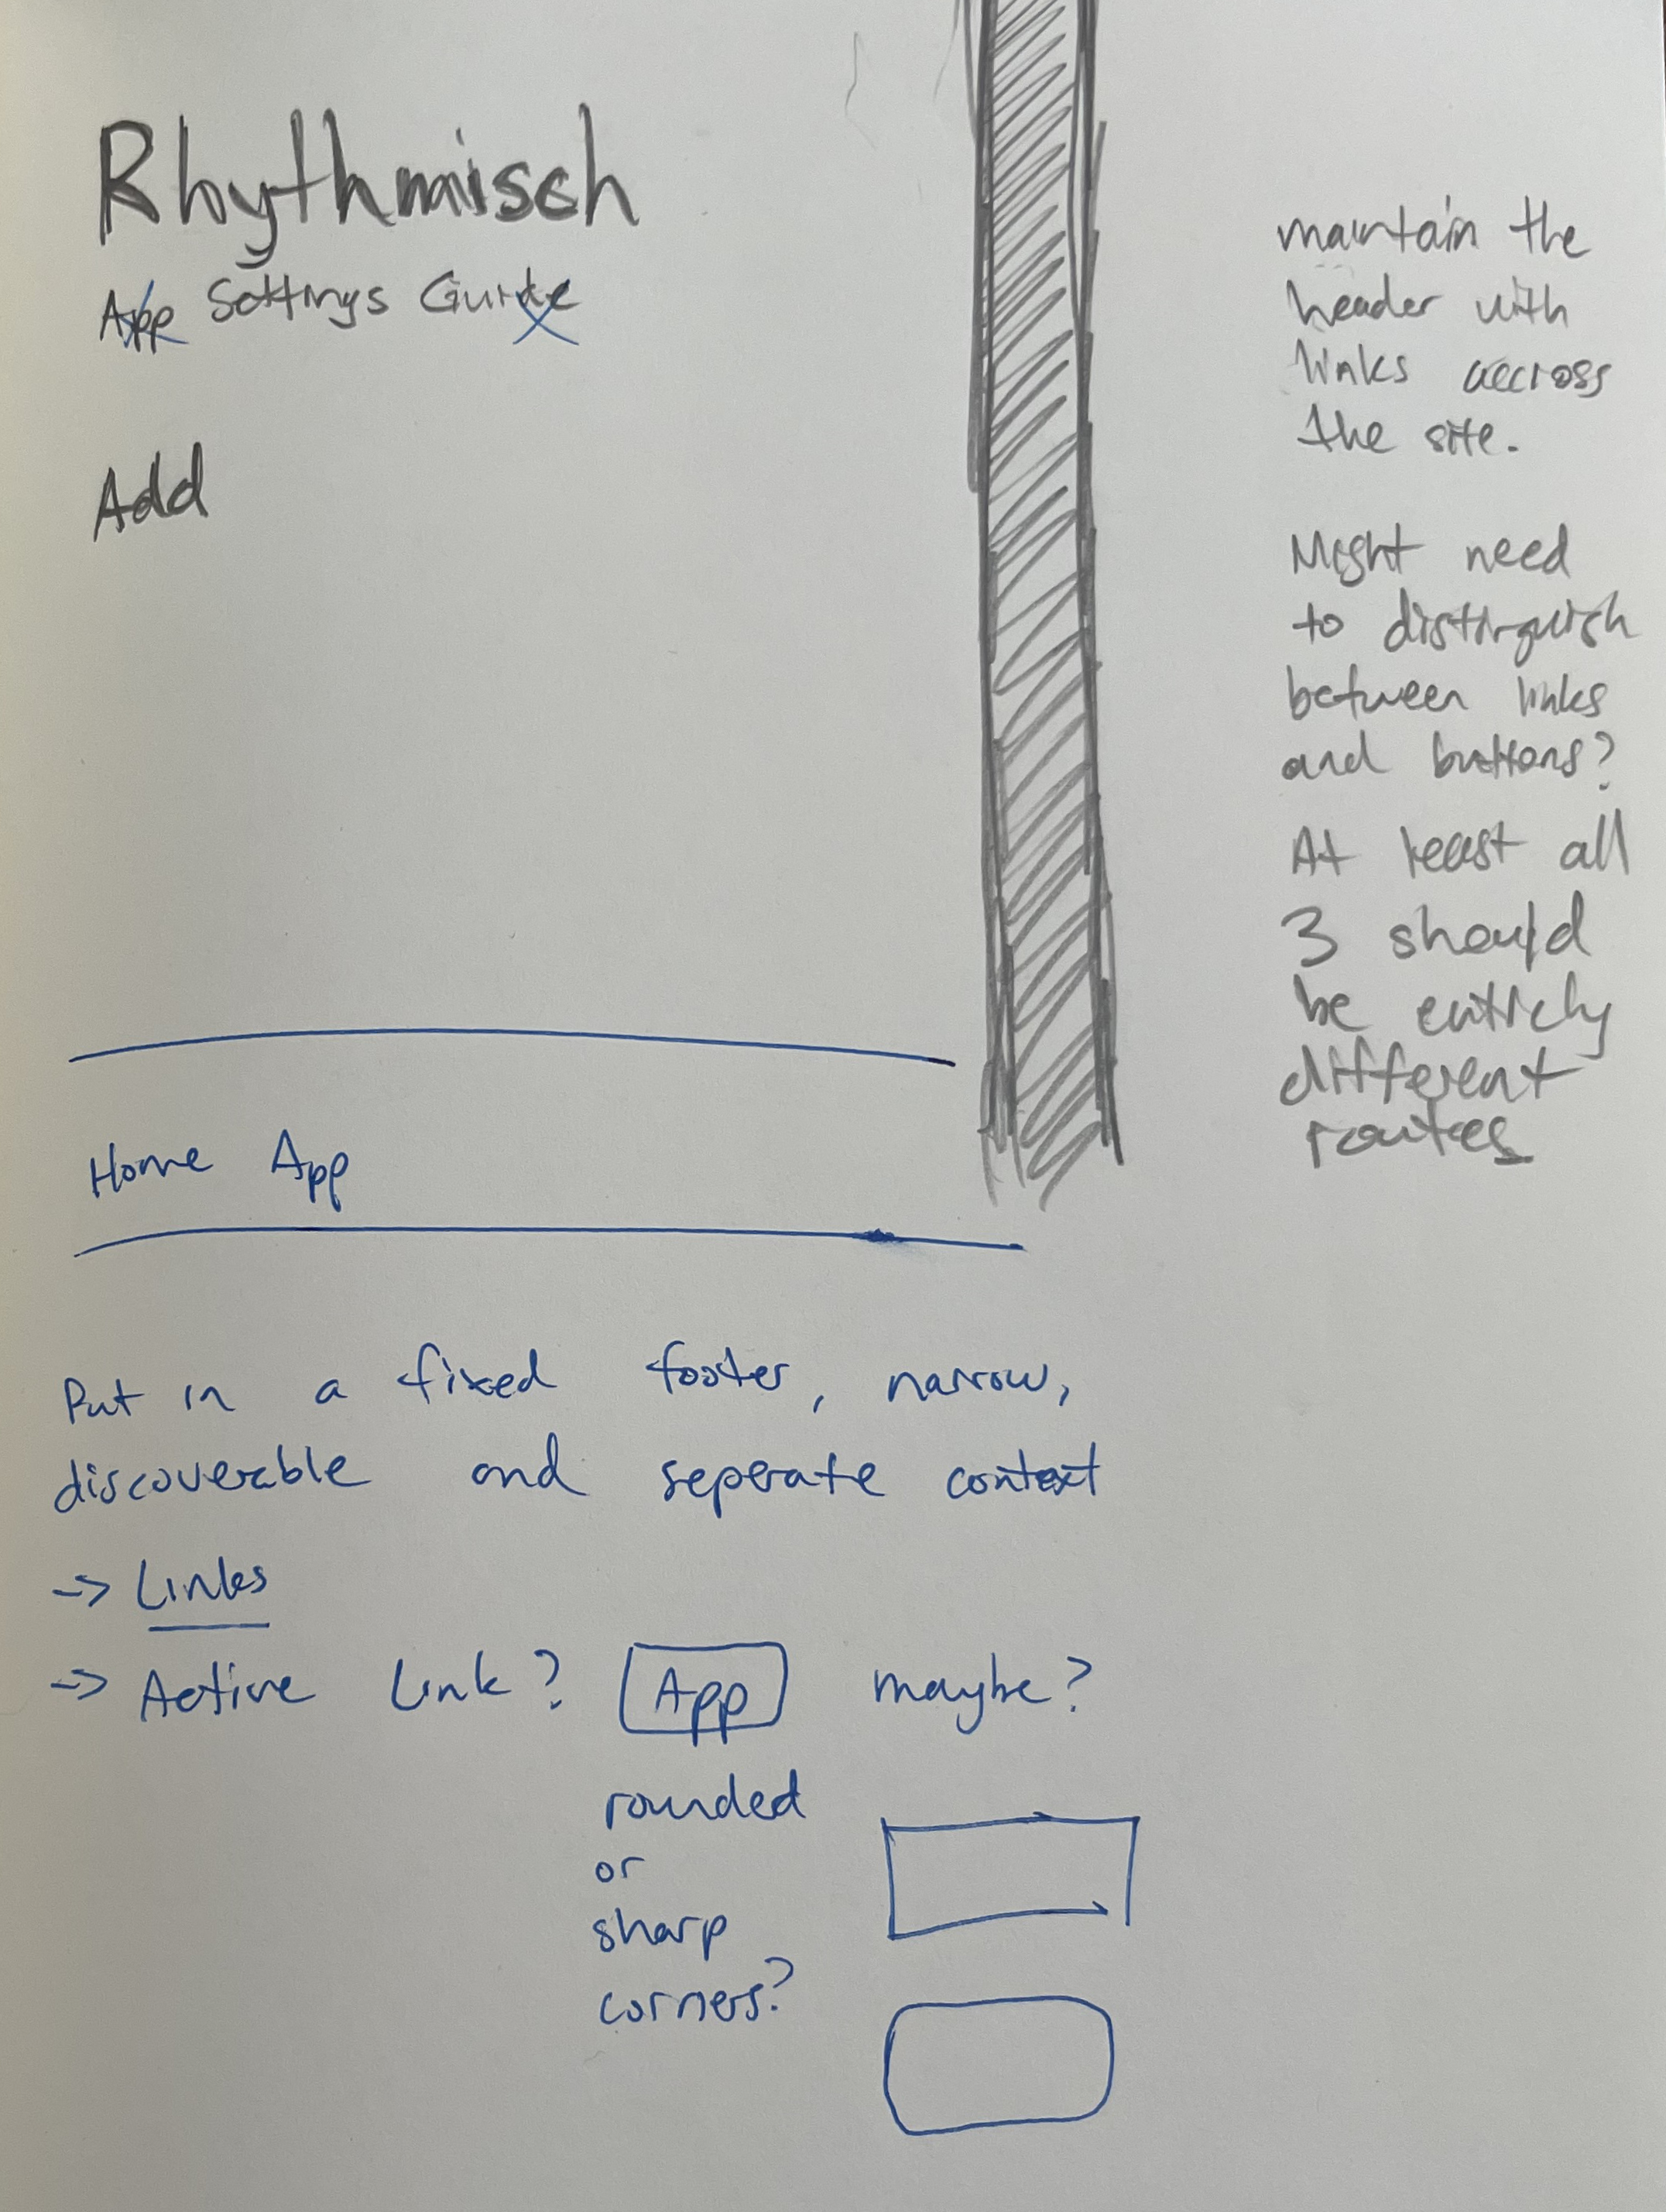 Rhythmisch
App Settings Guide
Add
maintain the
header with
links accross
the site.
Might need
to distinguish
between links
and buttons?
At least all
3 should
be entirely
different
routes
Home App
Put in a fixed footer, narrow,
discoverable and seperate context
-> Links
-> Active Link? App maybe?
rounded
or
sharp
corners?